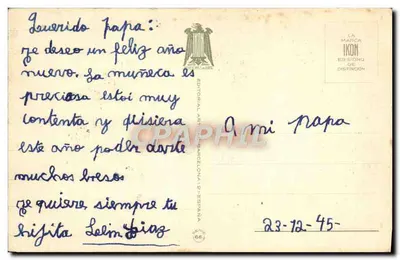 Querido papa:
te deseo un feliz año
nuevo. la muñeca es
preciosa estoi muy
contenta y qisiera
este año poder darte
muchos besos
te quiere siempre tu
hijita
A mi papa
23-12-45-
LA
MARCA
IKON
DISTINCION
EDITORIAL
BARCELONA
ESPAÑA